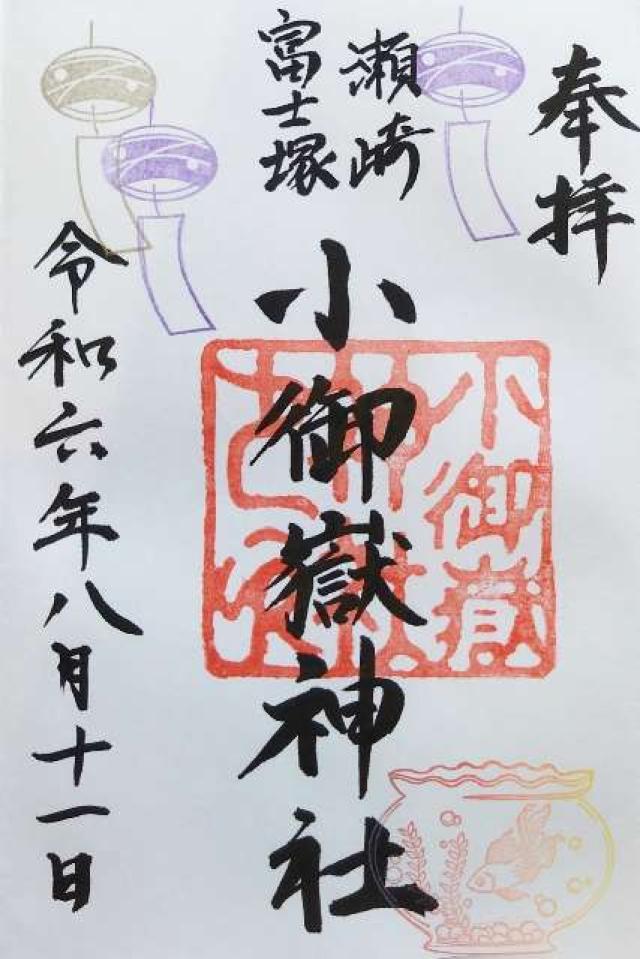 奉拝
瀬崎
富士塚
小御嶽神社
令和六年八月十一日
小御嶽